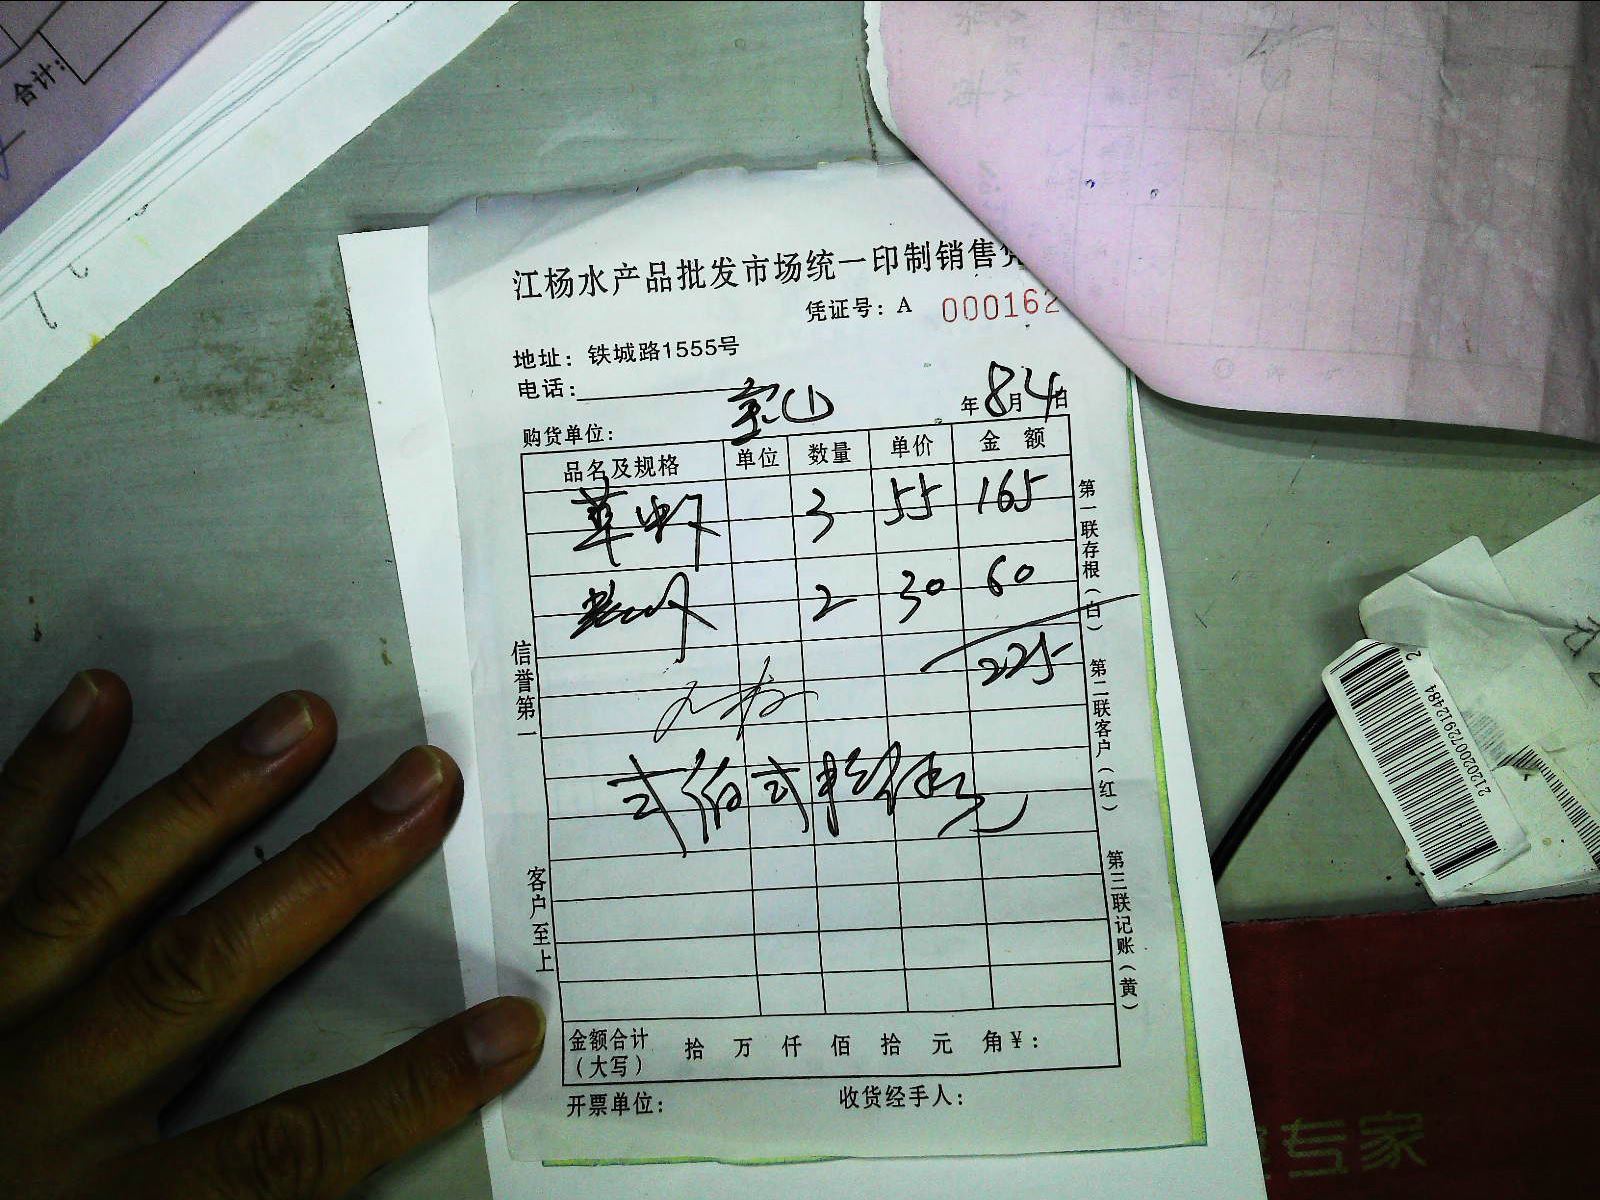 合计:
江杨水产品批发市场统一印制销售
凭证号: A 000162
地址: 铁城路1555号
电话:
购货单位: 宝山 年8月4日
品名及规格 单位 数量 单价 金 额
草虾 3 55 165
2 30 60
225
弍佰弍拾伍元
金额合计(大写) 拾 万 仟 佰 拾 元 角¥:
开票单位: 收货经手人:
信誉第一
客户至上
第一联存根(白)
第二联客户(红)
第三联记账(黄)
212020072912484
专家